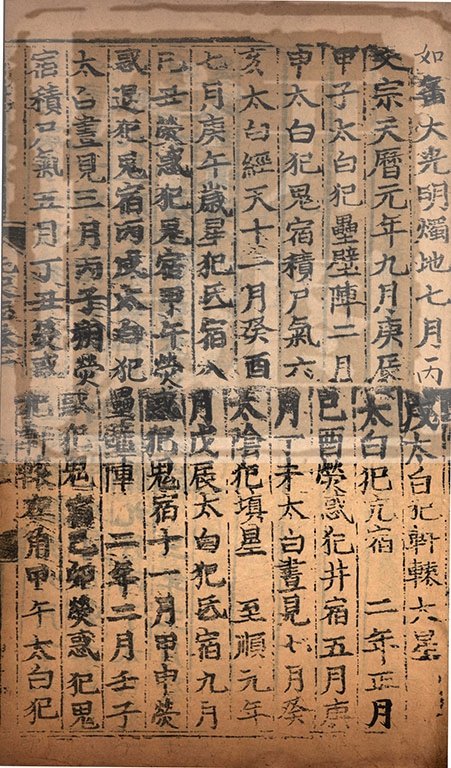 如大光明燭地七月丙戌太白犯軒轅大星
文宗天曆元年九月庚辰太白犯亢宿　二年正月
甲子太白犯壘壁陣二月己酉熒惑犯井宿五月庚
申太白犯鬼宿積尸氣六月丁未太白晝見七月癸
亥太白經天十一月癸酉太陰犯填星　至順元年
七月庚午歲星犯氐宿八月戊辰太白犯氐宿九月
己丑熒惑犯鬼宿甲午熒惑犯鬼宿十一月甲申熒
惑退犯鬼宿丙戌太白犯壘壁陣　二年二月壬子
太白晝見三月丙子朔熒惑犯鬼宿己卯熒惑犯鬼
宿積尸氣五月丁丑熒惑犯軒轅左角甲午太白犯